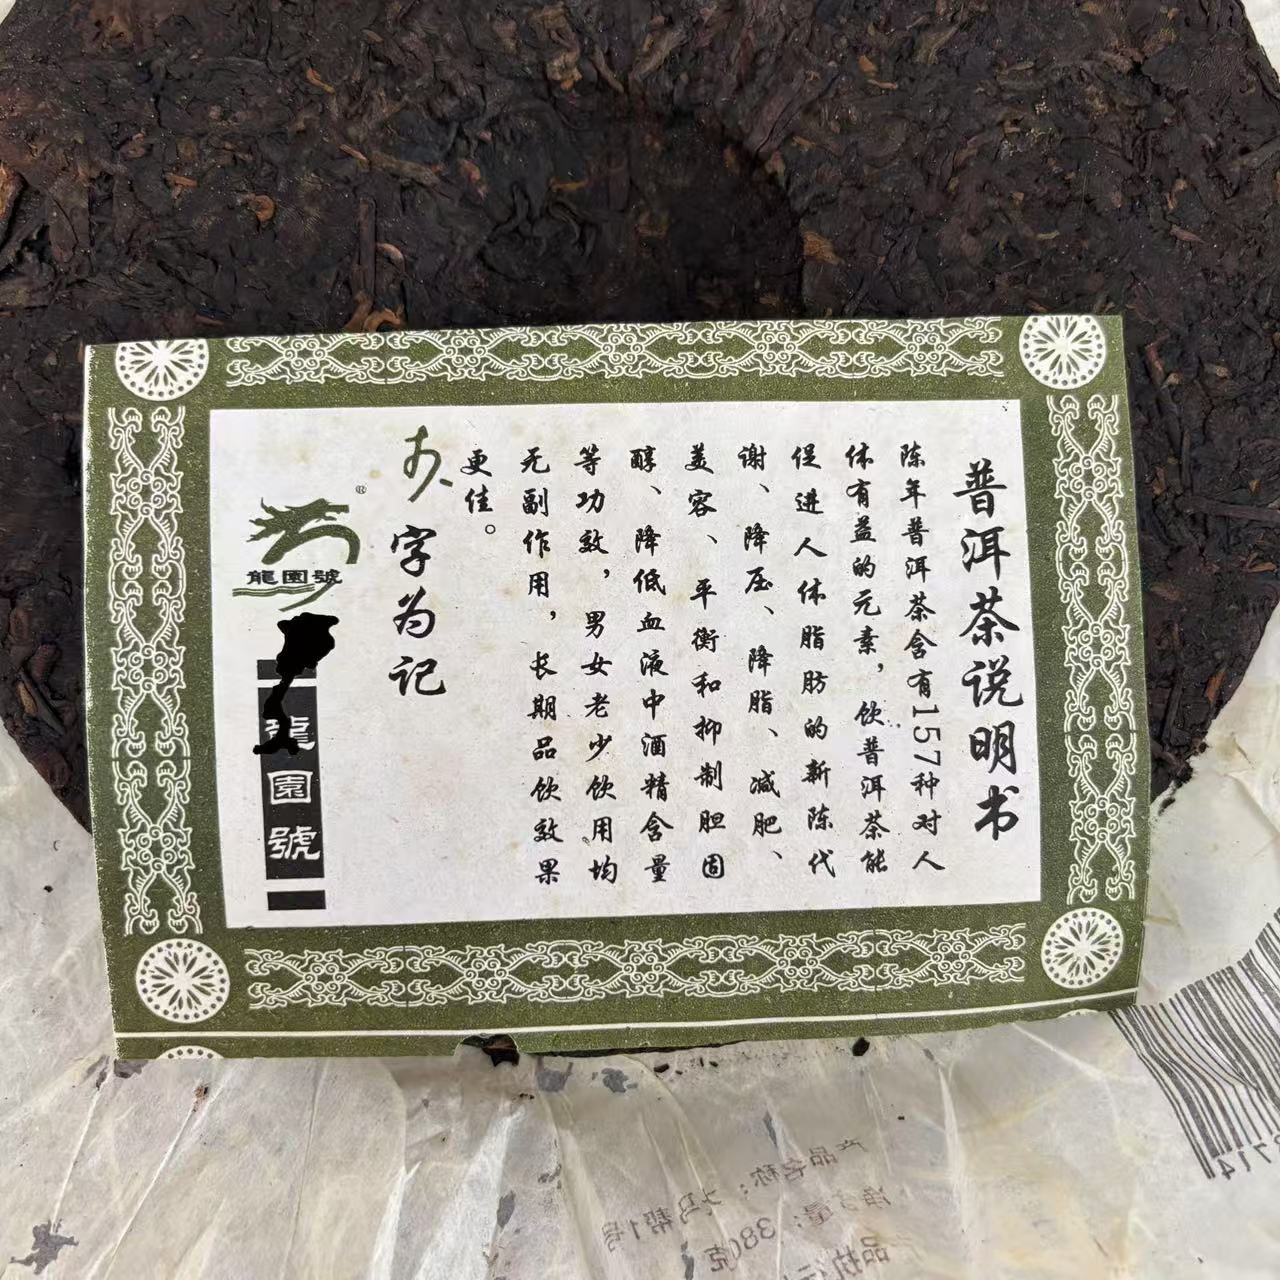 普洱茶说明书
陈年普洱茶含有157种对人
体有益的元素，饮普洱茶能
促进人体脂肪的新陈代
谢、降压、降脂、减肥、
美容、平衡和抑制胆固
醇、降低血液中酒精含量
等功效，男女老少饮用均
无副作用，长期品饮效果
更佳。
字为记
®
龍園號
龍園號
产品名称：大马帮1号
净含量：380克